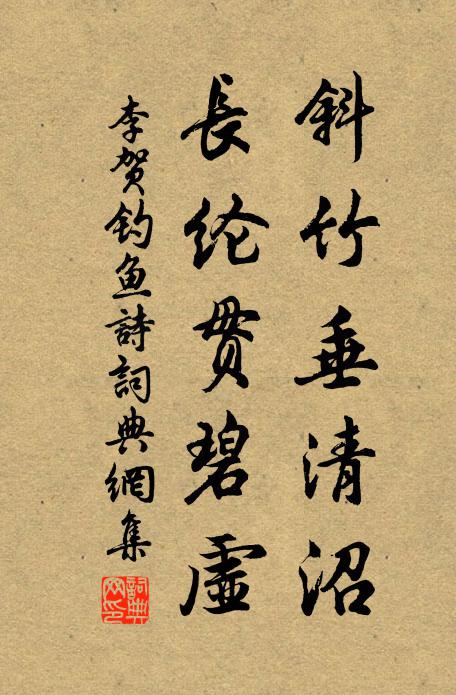 斜竹垂清沼
長纶贯碧虚
李贺钓鱼詩詞典網集